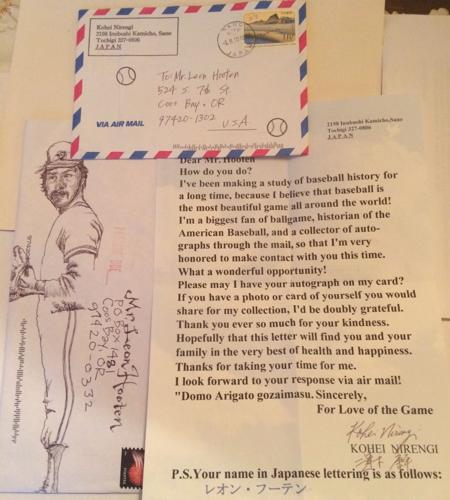 Kohei Nirengi
2198 Inubushi Kamicho, Sano
Tochigi 327-0806
JAPAN
To: Mr. Leon Hooten
524 S. 7th St
Coos Bay, OR
97420-1302
U.S.A
VIA AIR MAIL
Mr. Leon Hooten
PO Box 1481
Coos Bay, OR
97420-0332
2198 Inubushi Kamicho,Sano
Tochigi 327-0806
JAPAN
Dear Mr. Hooten
How do you do?
I've been making a study of baseball history for
a long time, because I believe that baseball is
the most beautiful game all around the world!
I'm a biggest fan of ballgame, historian of the
American Baseball, and a collector of auto-
graphs through the mail, so that I'm very
honored to make contact with you this time.
What a wonderful opportunity!
Please may I have your autograph on my card?
If you have a photo or card of yourself you would
share for my collection, I'd be doubly grateful.
Thank you ever so much for your kindness.
Hopefully that this letter will find you and your
family in the very best of health and happiness.
Thanks for taking your time for me.
I look forward to your response via air mail!
"Domo Arigato gozaimasu. Sincerely,
For Love of the Game
Kohei Nirengi
KOHEI NIRENGI
P.S.Your name in Japanese lettering is as follows:
レオン・フーテン